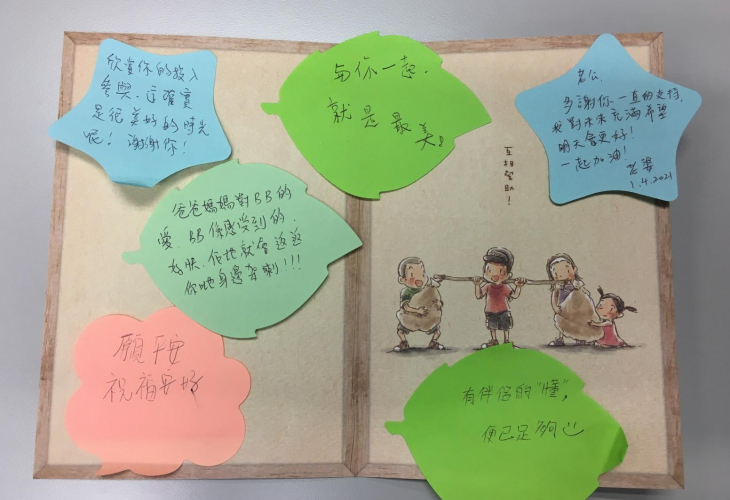 欣賞你的投入
參與,這確實
是很美好的時光
呢!謝謝你!
与你一起,
就是最美。
老公,
多謝你一直的支持,
我對未來充滿希望
明天會更好!
一起加油!
老婆
1.4.2021
互相幫助!
爸爸媽媽對BB的
愛,BB係感受到的,
好快,佢地就會返返
你哋身邊架喇!!!
願平安
祝福安好
有伴侶的"懂",
便已足夠